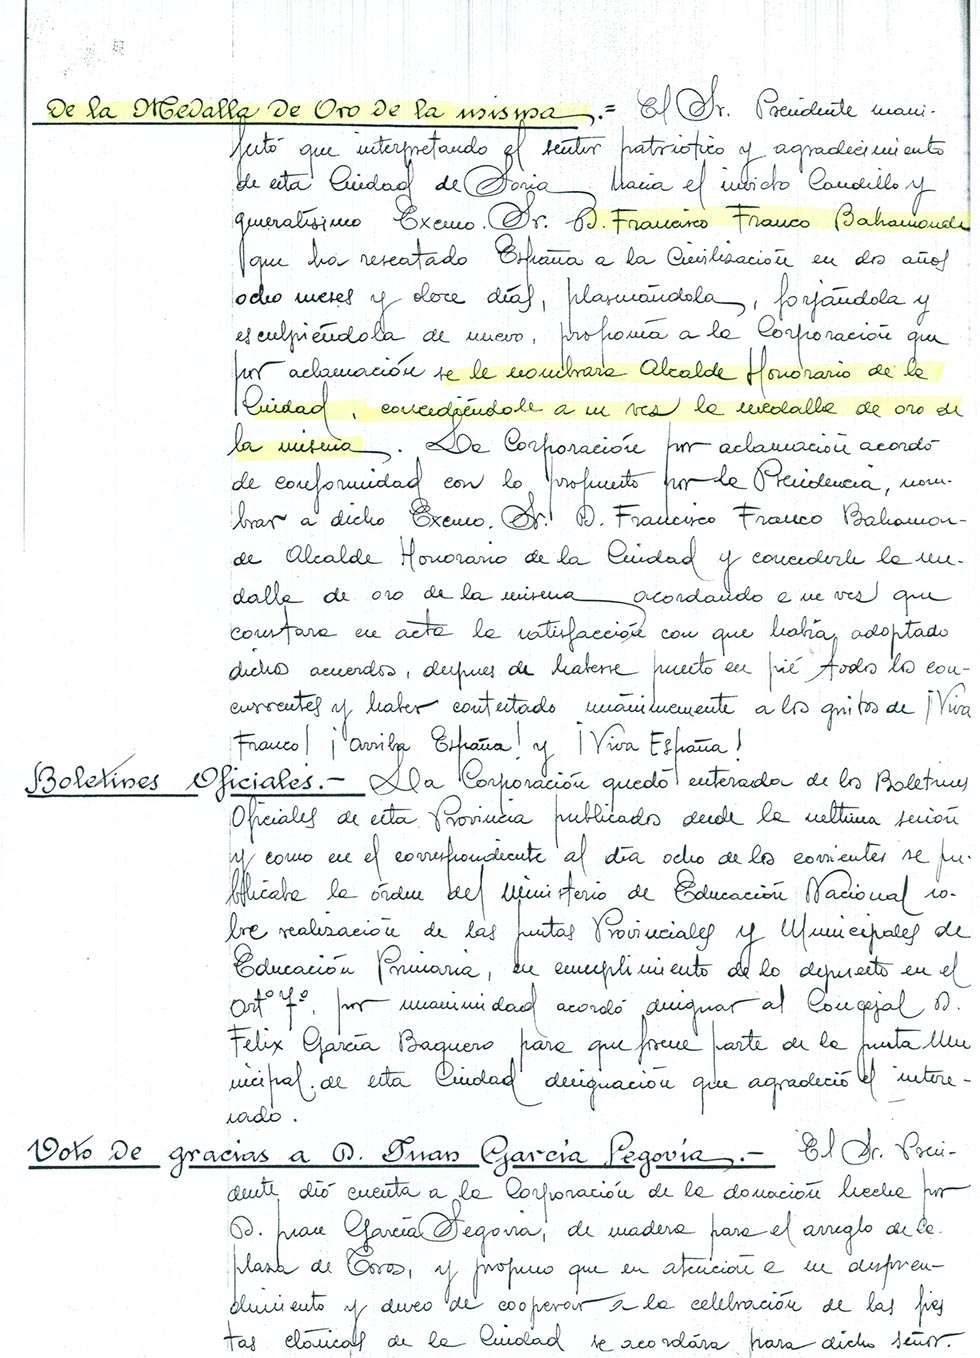 De la Medalla de Oro de la misma.= El Sr. Presidente mani-
festó que interpretando el sentir patriótico y agradecimiento
de esta Ciudad de Soria hacia el invicto Caudillo y
Generalísimo Excmo. Sr. D. Francisco Franco Bahamonde
que ha rescatado España a la Civilización en dos años
ocho meses y doce días, plasmándola, forjándola y
esculpiéndola de nuevo, proponía a la Corporación que
por aclamación se le nombrara Alcalde Honorario de la
Ciudad, concediéndole a su vez la medalla de oro de
la misma. La Corporación por aclamación acordó
de conformidad con lo propuesto por la Presidencia, nom-
brar a dicho Excmo. Sr. D. Francisco Franco Bahamon-
de Alcalde Honorario de la Ciudad y concederle la me-
dalla de oro de la misma acordando a su vez que
constara en acta la satisfacción con que había adoptado
dichos acuerdos, despues de haberse puesto en pié todos los con-
currentes y haber contestado unánimemente a los gritos de ¡Viva
Franco! ¡Arriba España! y ¡Viva España!
Boletines Oficiales.- La Corporación quedó enterada de los Boletines
Oficiales de esta Provincia publicados desde la ultima sesión
y como en el correspondiente al día ocho de los corrientes se pu-
blicaba la órden del Ministerio de Educación Nacional so-
bre realización de las juntas Provinciales y Municipales de
Educación Primaria, en cumplimiento de lo dispuesto en el
artº 7º. por unanimidad acordó designar al Concejal D.
Felix García Baquero para que forme parte de la junta Mu
nicipal de esta Ciudad designación que agradeció el intere-
sado.
Voto de gracias a D. Juan García Segovia.- El Sr. Presi-
dente dió cuenta a la Corporación de la donación hecha por
D. Juan García Segovia, de madera para el arreglo de la
plaza de Toros, y propuso que en atención a su despren-
dimiento y deseo de cooperar a la celebración de las fies
tas clásicas de la Ciudad se acordára para dicho señor.